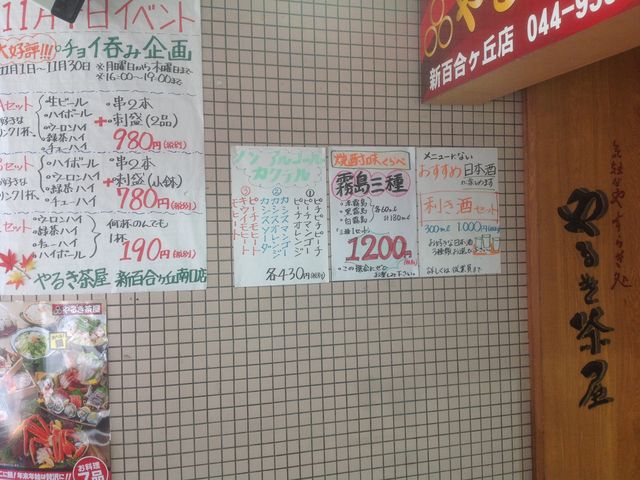 11月イベント
大好評!!!チョイ呑み企画
11月1日～11月30日 ※月曜日から木曜日まで
※16:00～19:00まで
Aセット
・生ビール
・ハイボール
・ウーロンハイ
・緑茶ハイ
・チューハイ
・串2本
+・刺盛(2品)
980円(税別)
Bセット
・ハイボール
・ウーロンハイ
・緑茶ハイ
・チューハイ
・串2本
+・刺盛(小鉢)
780円(税別)
セット
・ウーロンハイ
・緑茶ハイ
・チューハイ
・ハイボール
何杯のんでも
1杯 190円(税別)
やるき茶屋 新百合ヶ丘南口店
ノンアルコール
カクテル
①ピーチマンゴー
ピーチオレンジ
②カシスマンゴー
カシスオレンジ
カシスソーダ
③ピーチモヒート
キウイモヒート
モヒート
各430円(税別)
焼酎味くらべ
霧島三種
・赤霧島
・黒霧島
・白霧島
各60ml
計180ml
三種1セット
1200円(税別)
メニューにない
おすすめ日本酒
利き酒セット
300ml 1,000円(税別)
お好きな日本酒
3種類お選び
詳しくは従業員まで
新百合ヶ丘店
044-95
やるき茶屋
やるき茶屋
お料理
7品